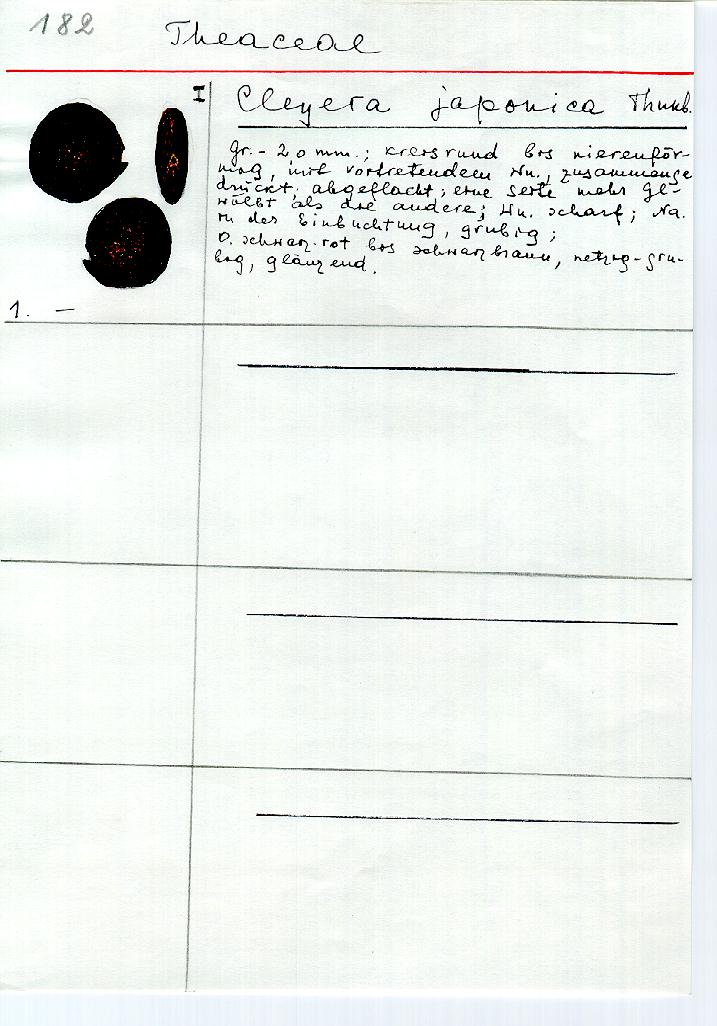 182
Theaceae
I
Cleyera japonica Thunb.
Gr.- 2,0 mm.; kreisrund bis nierenför-
mig, mit vortretendem Wu., zusammenge
drückt, abgeflacht; eine Seite mehr ge-
wölbt als die andere; Wu. scharf; Na.
in der Einbuchtung, grubig;
O. schwarz-rot bis schwarzbraun, netzig-gru-
big, glänzend.
1. —